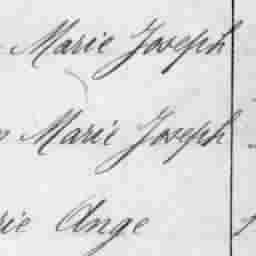 Marie Joseph
Marie Joseph
rie Ange